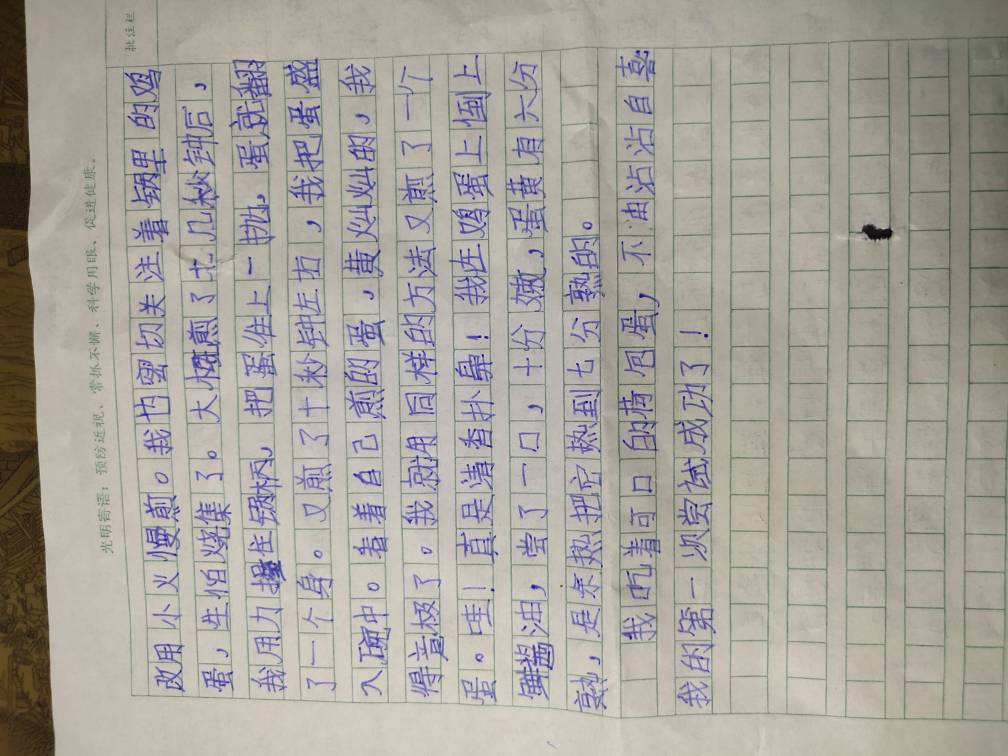 光明寄语：预防近视、常抓不懈、科学用眼、促进健康。
批注栏
改用小火慢煎。我也密切关注着锅里的鸡
蛋，生怕烧焦了。大概煎了十几秒钟后，
我用力握住锅柄，把蛋往上一抛，蛋就翻
了一个身。又煎了十秒钟左右，我把蛋盛
入碗中。看着自己煎的蛋，黄灿灿的，我
得意极了。我就用同样的方法又煎了一个
蛋。哇！真是清香扑鼻！我在鸡蛋上倒上
鲜酱油，尝了一口，十分嫩，蛋黄有六分
熟，是余热把它热到七分熟的。
我吃着可口的荷包蛋，不油沾沾自喜
我的第一次尝试成功了！